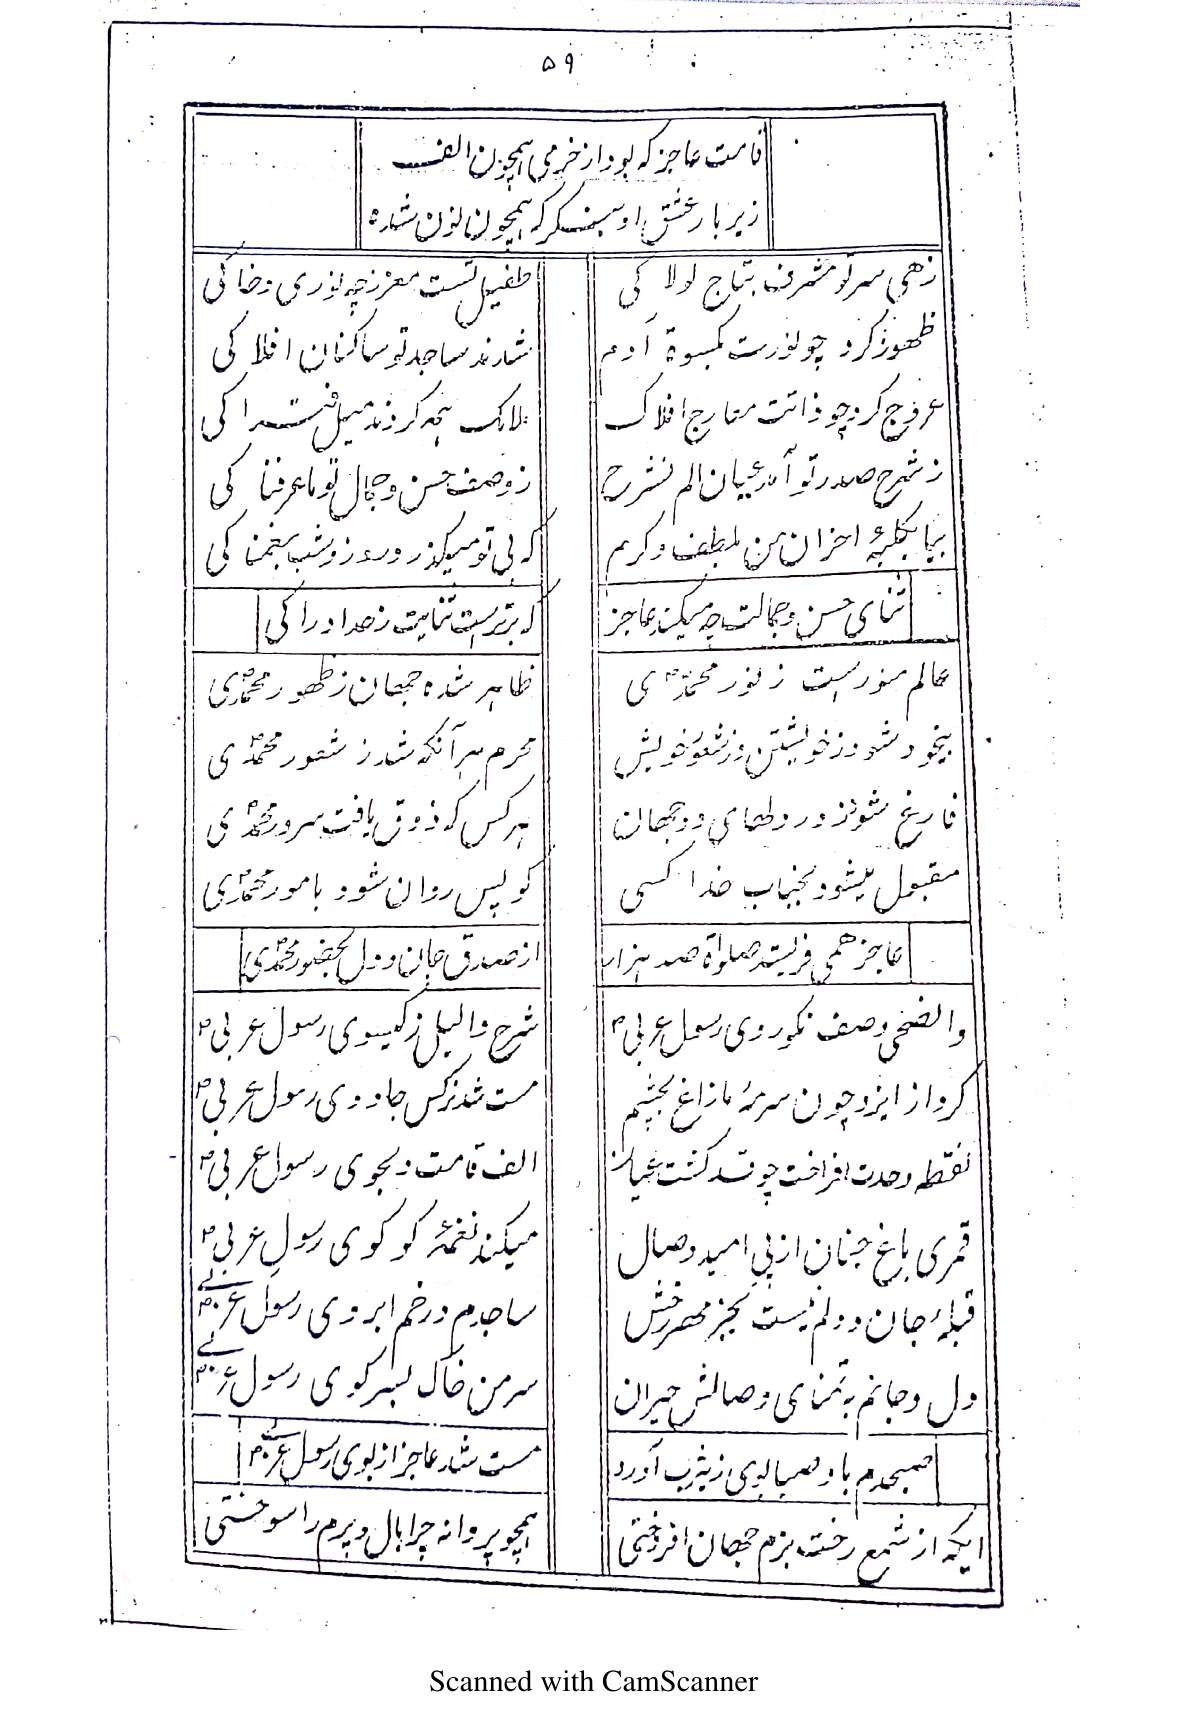 ۵۹
قامت عاجز که بود از خرمی همچون الف
زیر بار عشق او بنگر که همچون نون شده
زهی سر تو مشرف بتاج لولا کی
طفیل تست معزز چه نوری و خاکی
ظهور کرد چو نورت بکسوة آدم
شدند ساجد تو ساکنان افلا کی
عروج کرد چو ذاتت معارج افلاک
ملایک همه کردند میل فتدا کی
ز شرح صدر تو آمد عیان الم نشرح
ز وصف حسن و جمال تو ما عرفنا کی
بیا بکلبهٔ احزان من بلطف و کرم
که بی تو میگذرد روز و شب بغمنا کی
ثنای حسن و جمالت چه میکند عاجز
که برترست ثنایت ز حد ادرا کی
عالم منورست ز نور محمدؐ ی
ظاهر شده جهان ز ظهور محمدؐی
بیخود شود ز خویشتن و ز شعور خویش
محرم هر آنکه شد ز شعور محمدؐی
فارغ شود ز درد و طمهای دو جهان
هر کس که ذوق یافت سرور محمدؐی
مقبول میشود بجناب خدا کسی
کو پس روان شود بامور محمدؐی
عاجز همی فرستد صلواة صد هزار
از صدق جان و دل بحضور محمدؐی
والضحی وصف نکو روی رسول عربی ؐ
شرح والیل ز گیسوی رسول عربی ؐ
کرد از ایزد چون سرمهٔ مازاغ بچشم
مست شد نرگس جادوی رسول عربی ؐ
نقطه وحدت افراخت چو قد گشت عیان
الف قامت دلجوی رسول عربی ؐ
قمری باغ جنان از پی امید وصال
میکند نغمهٔ کو کوی رسول عربی ؐ
قبلهٔ جان و دلم نیست بجز مهر رخش
ساجدم در خم ابروی رسول عربی ؐ
دل و جانم به تمنای وصالش حیران
سر من خاک بسر کوی رسول عربی ؐ
صبحدم باد صبا بوی ز یثرب آورد
مست شد عاجز از بوی رسول عربی ؐ
ایکه از شمع رخت بزم جهان افروختی
همچو پروانه چرا بال و پرم را سوختی
Scanned with CamScanner